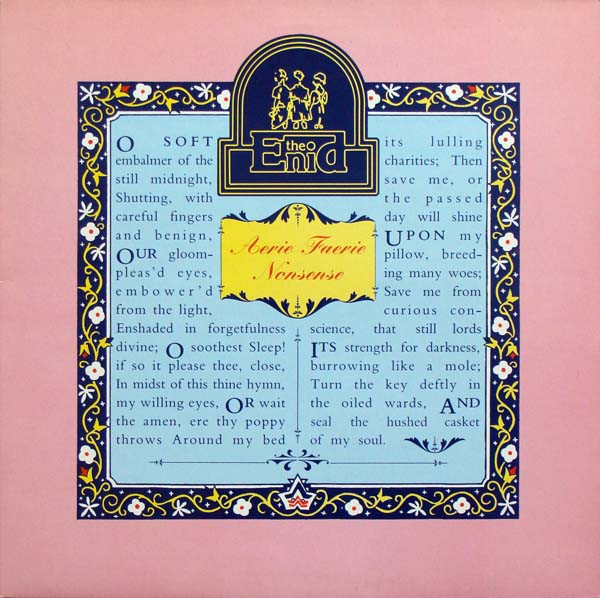 the
Enid
Aerie Faerie
Nonsense
O SOFT
embalmer of the
still midnight,
Shutting, with
careful fingers
and benign,
OUR gloom-
pleas'd eyes,
embower'd
from the light,
Enshaded in forgetfulness
divine; O soothest Sleep!
if so it please thee, close,
In midst of this thine hymn,
my willing eyes, OR wait
the amen, ere thy poppy
throws Around my bed
its lulling
charities; Then
save me, or
the passed
day will shine
UPON my
pillow, breed-
ing many woes;
Save me from
curious con-
science, that still lords
ITS strength for darkness,
burrowing like a mole;
Turn the key deftly in
the oiled wards, AND
seal the hushed casket
of my soul.